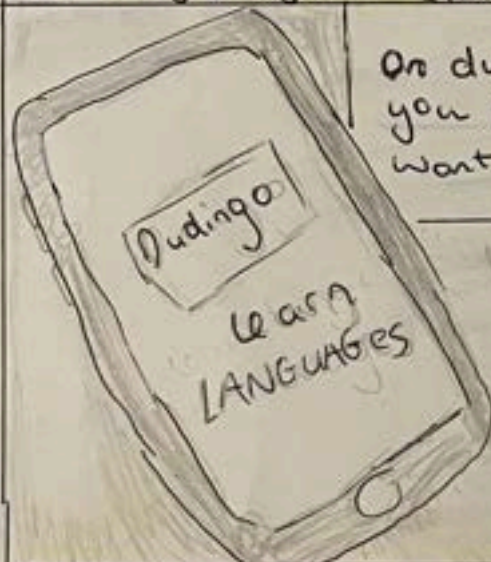 Dudingo
Learn
LANGUAGES
On du
you
want